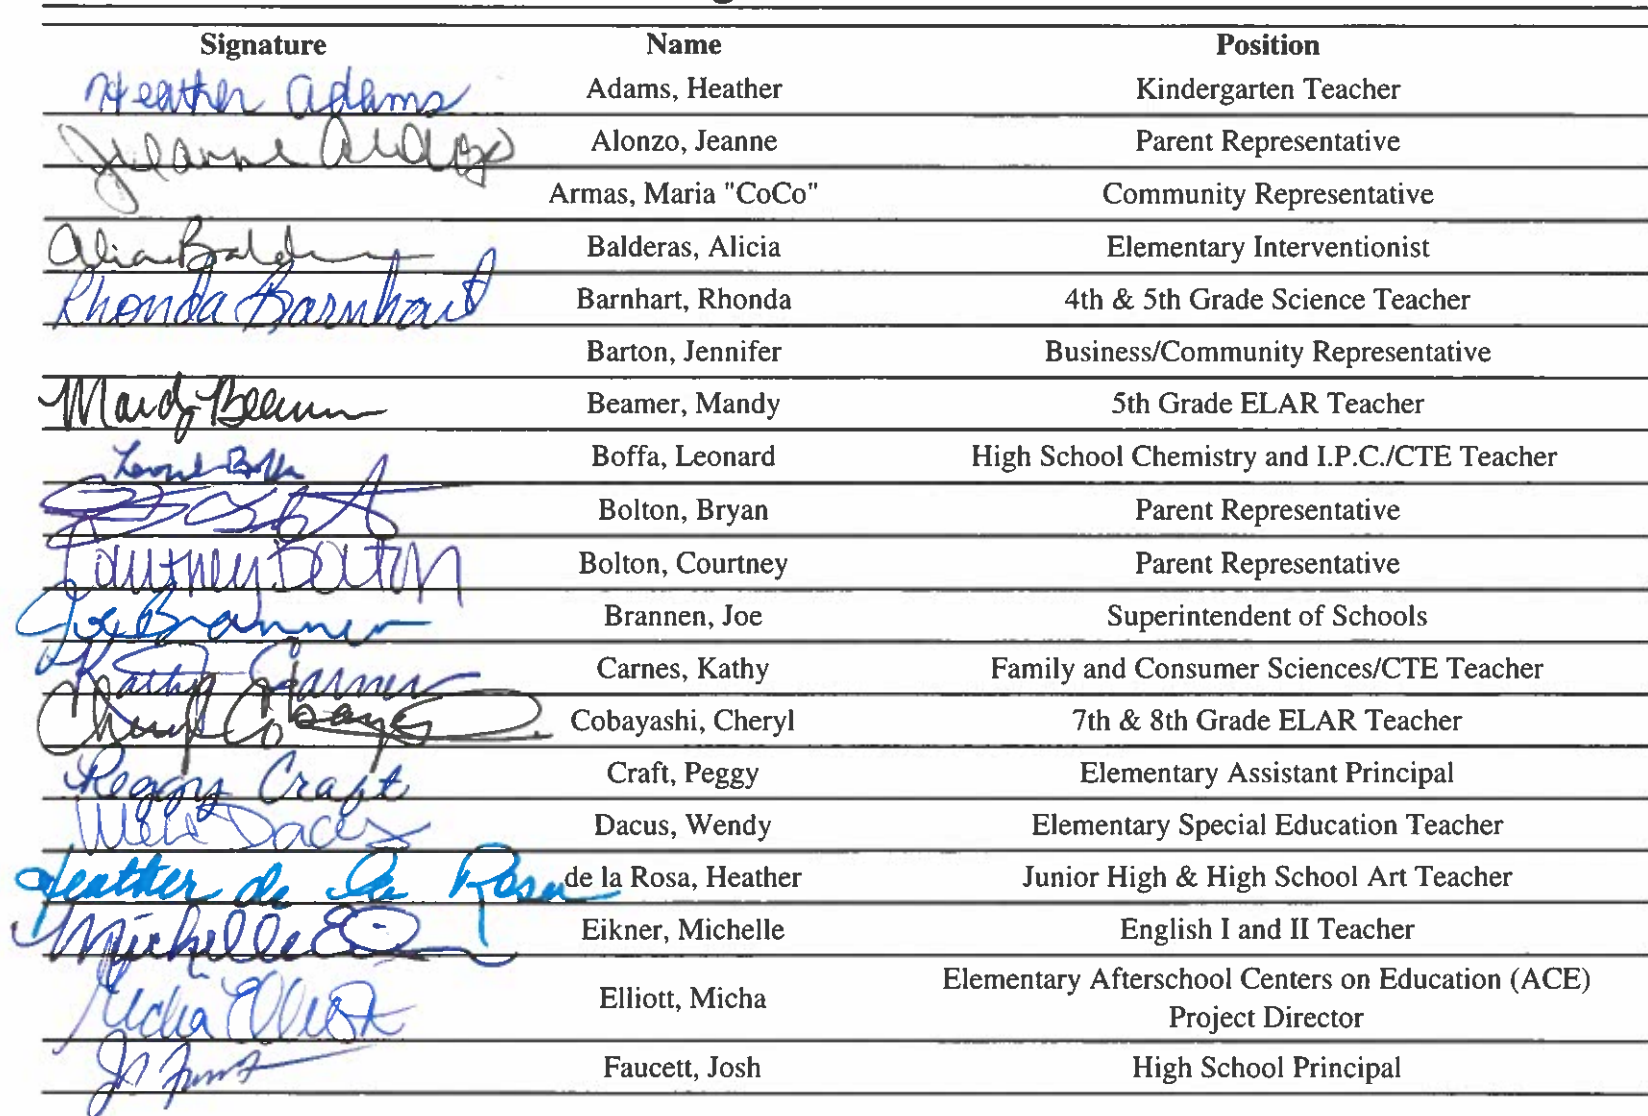 Signature Name Position
Heather Adams Adams, Heather Kindergarten Teacher
Alonzo, Jeanne Parent Representative
Armas, Maria "CoCo" Community Representative
Alicia Balderas, Alicia Elementary Interventionist
Rhonda Barnhart Barnhart, Rhonda 4th & 5th Grade Science Teacher
Barton, Jennifer Business/Community Representative
Mandy Beamer Beamer, Mandy 5th Grade ELAR Teacher
Boffa, Leonard High School Chemistry and I.P.C./CTE Teacher
Bolton, Bryan Parent Representative
Courtney Bolton Bolton, Courtney Parent Representative
Joe Brannen Brannen, Joe Superintendent of Schools
Kathy Carnes Carnes, Kathy Family and Consumer Sciences/CTE Teacher
Cheryl Cobayashi, Cheryl 7th & 8th Grade ELAR Teacher
Peggy Craft Craft, Peggy Elementary Assistant Principal
Dacus, Wendy Elementary Special Education Teacher
Heather de la Rosa de la Rosa, Heather Junior High & High School Art Teacher
Michelle Eikner, Michelle English I and II Teacher
Micha Elliott Elliott, Micha Elementary Afterschool Centers on Education (ACE)
Project Director
Faucett, Josh High School Principal